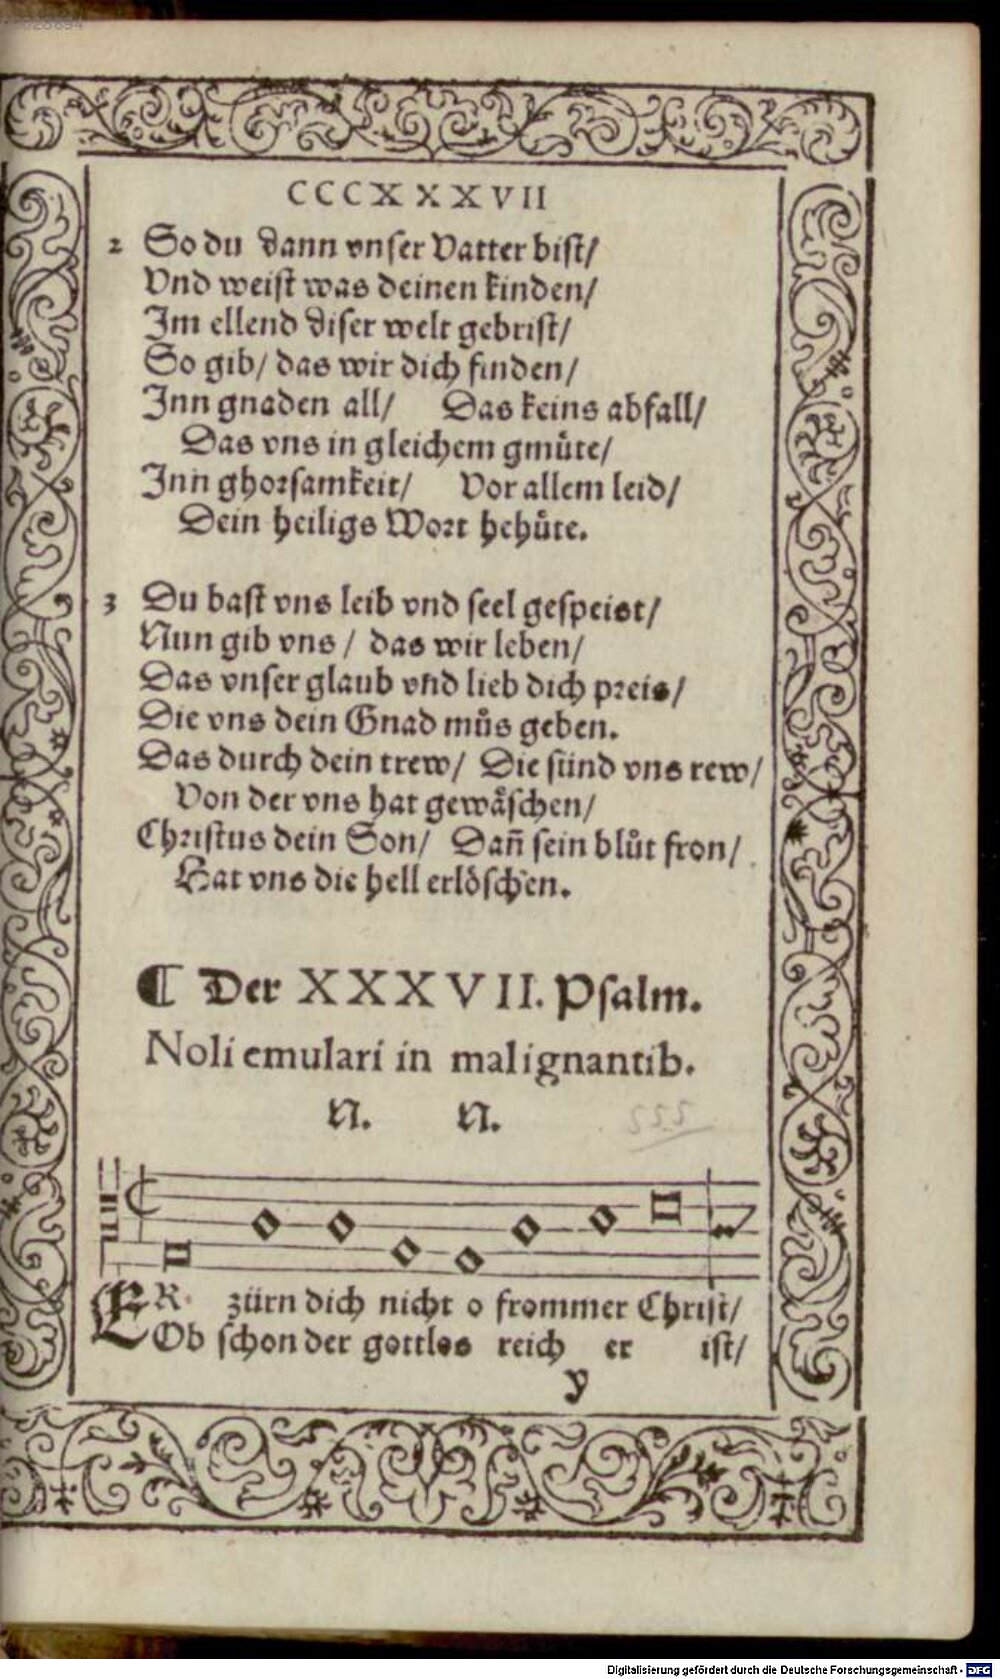 CCCXXXVII
2 So du dann vnser Vatter bist/
Vnd weist was deinen kinden/
Im ellend diser welt gebrist/
So gib/ das wir dich finden/
Inn gnaden all/ Das keins abfall/
Das vns in gleichem gmuͤte/
Inn ghorsamkeit/ Vor allem leid/
Dein heiligs Wort hehuͤte.
3 Du hast vns leib vnd seel gespeist/
Nun gib vns / das wir leben/
Das vnser glaub vnd lieb dich preis/
Die vns dein Gnad muͦs geben.
Das durch dein trew/ Die sünd vns rew/
Von der vns hat gewaͤschen/
Christus dein Son/ Dañ sein bluͦt fron/
Hat vns die hell erloͤschen.
¶ Der XXXVII. Psalm.
Noli emulari in malignantib.
N. N.
222
ER zürn dich nicht o frommer Christ/
Ob schon der gottlos reich er ist/
y
Digitalisierung gefördert durch die Deutsche Forschungsgemeinschaft - DFG